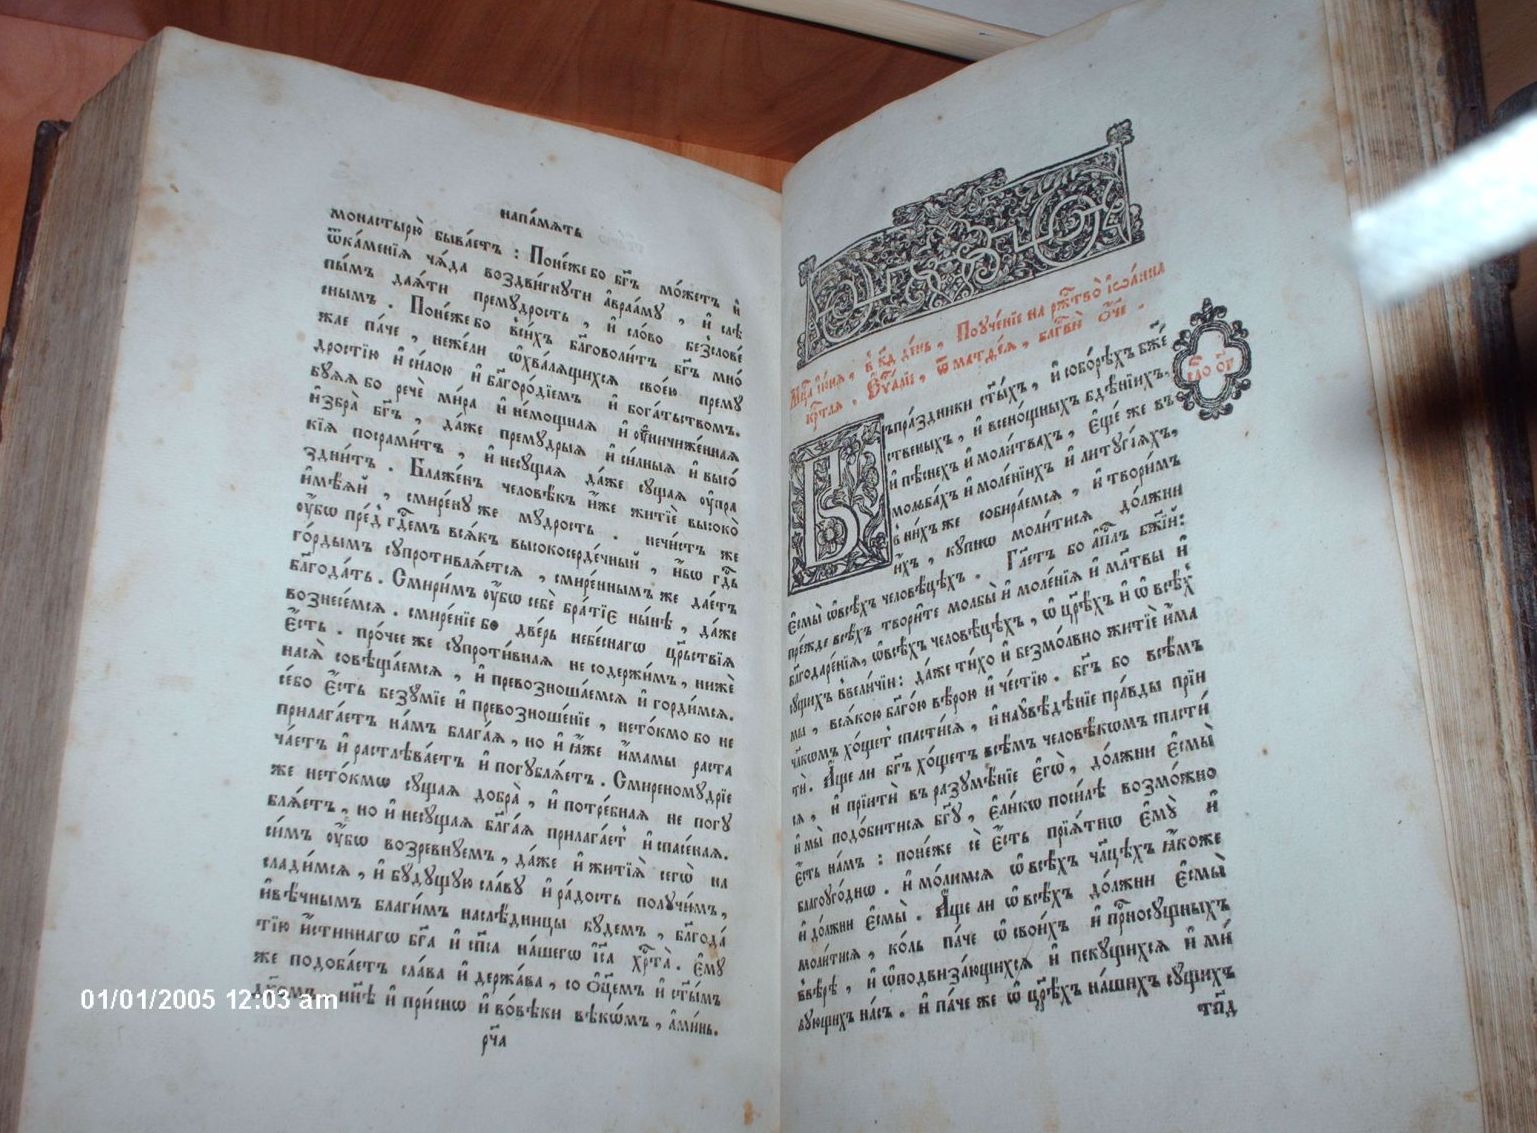 напа́мѧть
монастырю̀ быва́етъ : Поне́же бо бг҃ъ мо́жетъ и҆
ѿка́менїѧ ча̑да воздви́гнути а҆враа́мꙋ , и҆ слѣ
пы́мъ даѧ́ти премꙋ́дрость , и҆ сло́во безслове́
снымъ . Поне́же бо в̾ни́хъ бл҃говоли́тъ бг҃ъ мно́
жае па́че , не́жели ѡ҆хвалѧ́щихсѧ свое́ю премꙋ
дростїю и҆ си́лою и҆ бл҃горо́дїемъ и҆ бога́тьствомъ.
бꙋ́ѧѧ бо речѐ ми́ра и҆ не́мощнаѧ и҆ ᲂу҆ничиже́ннаѧ
и҆збра̀ бг҃ъ , да́же премꙋ́дрыѧ и҆ си́лныѧ и҆ высо́
кїѧ посрами́тъ , и҆ несꙋ́щаѧ да́же сꙋ́щаѧ ᲂу҆пра
здни́тъ . Блаже́нъ человѣ́къ и҆́же житїѐ высоко̀
и҆мѣ́ѧй , смире́нꙋ же мꙋ́дрость . нечи́стъ же
ᲂу҆́бѡ пре́д̾ гд҇емъ всѧ́къ высокосерде́чный , и҆́бѡ гд҇ь
го́рдымъ сꙋпротивлѧ́етсѧ , смире́ннымъ же дае́тъ
бл҃года́ть . Смири́мъ ᲂу҆́бѡ себѐ бра́тїе ны́нѣ , да́же
вознесе́мсѧ . смире́нїе бо две́рь небе́снагѡ црⷭ҇твїѧ
є҆́сть . про́чее же сꙋпроти́внаѧ не содержи́мъ , нижѐ
насѧ̀ совѣща́емсѧ , и҆ превозноша́емсѧ и҆ горди́мсѧ.
се́бо є҆́сть безꙋ́мїе и҆ превозноше́нїе , нето́кмо бо не
прилага́етъ на́мъ блага́ѧ , но и҆ ꙗ҆̀же и҆́мамы раста
ча́етъ и҆ растлѣва́етъ и҆ погꙋблѧ́етъ . Смиреномꙋ́дрїе
же нето́кмѡ сꙋ́щаѧ добра̀ , и҆ потре́бнаѧ не погꙋ
блѧ́етъ , но и҆ несꙋ́щаѧ бл҃га́ѧ прилага́етъ и҆ спасе́наѧ.
си́мъ ᲂу҆́бѡ возревнꙋ́емъ , да́же и҆ житїѧ̀ сегѡ̀ на
слади́мсѧ , и҆ бꙋ́дꙋщꙋю сла́вꙋ и҆ ра́дость полꙋчи́мъ ,
и҆вѣ́чнымъ благи́мъ наслѣ́дницы бꙋ́демъ , бл҃года́
тїю и҆́стиннагѡ бг҃а и҆ сп҃са на́шегѡ і҆и҃са хрⷭ҇та̀ . є҆мꙋ́
же подоба́етъ сла́ва и҆ держа́ва , со ѻ҆ц҃емъ и҆ ст҃ы́мъ
дх҃омъ , нн҃ѣ и҆ при́снѡ и҆ во́вѣки вѣкѡ́мъ , а҆ми́нь.
рч҃а
Мцⷭ҇а і҆ю́нїѧ , в̾ к҃д де́нь , Поуче́нїе на рж҇тво̀ і҆ѡа́нна
крⷭ҇тлѧ . В̾ѵ҆а́лїи , ѿ матѳе́ѧ , благⷭ҇вѝ ѻ҆́ч҃е .
Въпра́здники ст҃ы́хъ , и҆ собо́рѣхъ бж҃е́
ственыхъ , и҆ всено́щныхъ бдѣ́нїихъ.
и҆ пѣ́снехъ и҆ моли́твахъ , є҆ще́ же въ
мольба́хъ и҆ моле́нїихъ и҆ литꙋргі́ѧхъ,
в̾ ни́хъ же собира́емсѧ , и҆ твори́мъ
и҆̀хъ , кꙋ́пнѡ моли́тисѧ до́лжни
є҆смы̀ ѡ҆все́хъ человѣ́цѣхъ . Гл҃етъ бо а҆пⷭ҇лъ бж҃їй:
пре́жде всѣ́хъ твори́те молбы̀ и҆ моле́нїѧ и҆ мл҃твы и҆
бл҃годаре́нїѧ, ѡ҆всѣ́хъ человѣ́цѣхъ , ѡ҆ цр҃ѣхъ и҆ ѡ҆ всѣ́х̾
сꙋ́щихъ в̾вели́чїи: да́же ти́хо и҆ безмо́лвно житїѐ и҆́ма
мы , всѧ́кою бл҃го́ю вѣ́рою и҆ че́стїю . бг҃ъ бо всѣ́мъ
чл҃кѡмъ хо́щет̾ спасти́сѧ , и҆ наꙋвѣ́дѣнїе пра́вды прїи
тѝ . А҆́ще ли бг҃ъ хо́щетъ всѣ́мъ человѣ́кѡмъ спасти́
сѧ , и҆ прїитѝ въ разꙋмѣ́нїе є҆гѡ̀ , до́лжни є҆смы̀
и҆ мы̀ подо́битисѧ бг҃ꙋ , є҆ли́кѡ поси́лѣ возмо́жно
є҆́сть на́мъ : поне́же сѐ є҆́сть прїѧ́тнѡ є҆мꙋ̀ и҆
благоꙋго́днѡ . и҆ мо́лимсѧ ѡ҆ всѣ́хъ чл҃цѣхъ ꙗ҆́коже
и҆ до́лжни є҆смы̀ . А҆́ще ли ѡ҆ всѣ́хъ до́лжни є҆смы̀
моли́тисѧ , ко́ль па́че ѡ҆ свои́хъ и҆ прⷭ҇носꙋ́щныхъ
в̾вѣ́рѣ , и҆ ѡ҆подвиза́ющихсѧ и҆ пекꙋ́щихсѧ и҆ ми́
лꙋющихъ на́съ . и҆ па́че же ѡ҆ цр҃ѣхъ на́шихъ сꙋ́щихъ
тп҃д
01/01/2005 12:03 am